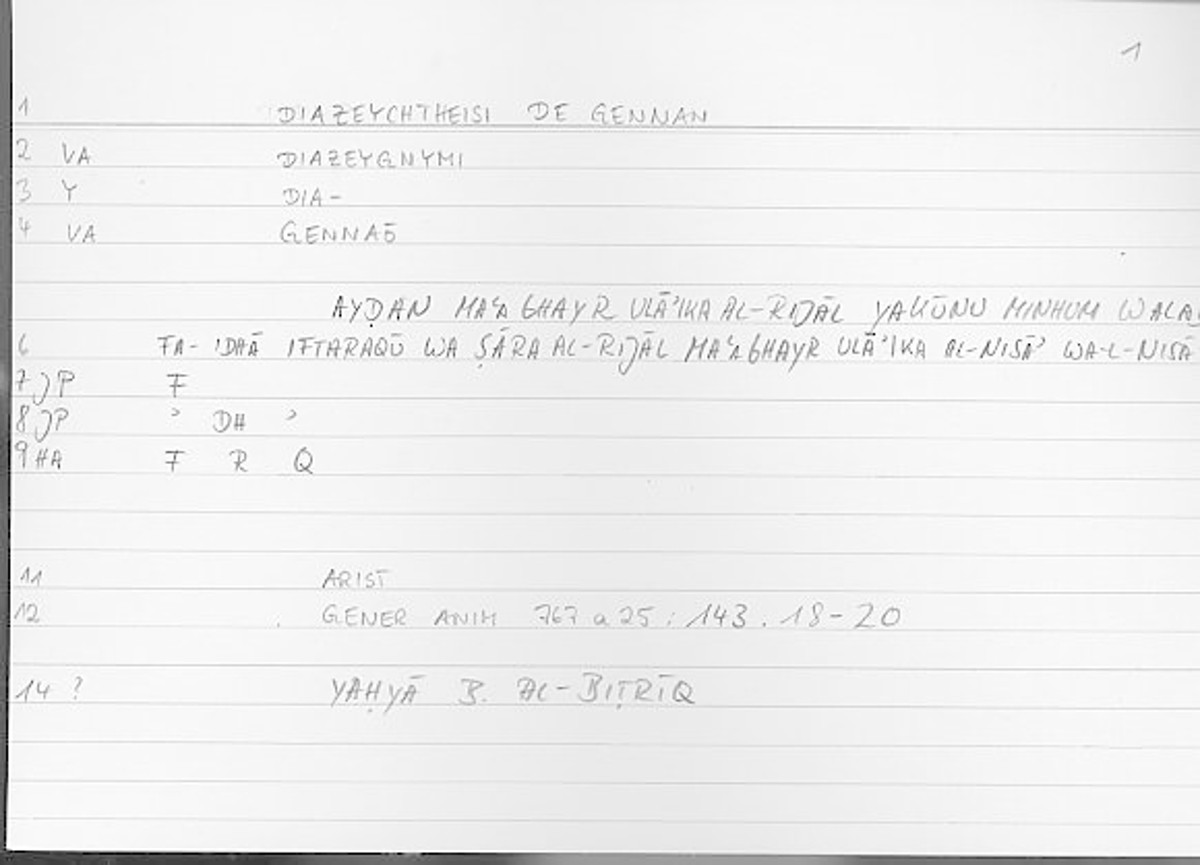 1
1 DIAZEYCHTHEISI DE GENNAN
2 VA DIAZEYGNYMI
3 Y DIA-
4 VA GENNAŌ
AYḌAN MAʿA GHAYR ULĀʾIKA AL-RIJĀL YAKŪNU MINHUM WALA
6 FA-ʾIDHĀ IFTARAQŪ WA ṢĀRA AL-RIJĀL MAʿA GHAYR ULĀʾIKA AL-NISĀʾ WA-L-NISĀ
7 JP F
8 JP ʾ DH ʾ
9 HA F R Q
11 ARIST
12 GENER ANIM 767 a 25 : 143. 18-20
14 ? YAḤYĀ B. AL-BIṬRĪQ